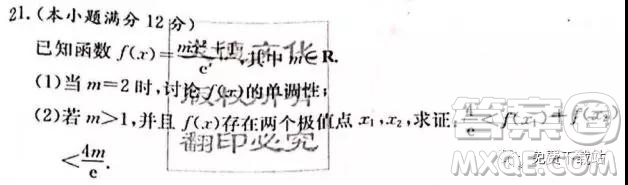 21.(本小题满分12分)
已知函数 f(x)=mx²+1/eˣ,其中 m∈R.
(1)当 m=2 时,讨论 f(x)的单调性;
(2)若 m>1,并且 f(x)存在两个极值点 x₁,x₂,求证: /e<f(x₁)+f(x₂)
<4m/e.
版权所有
翻印必究
答案圈
免费下载站